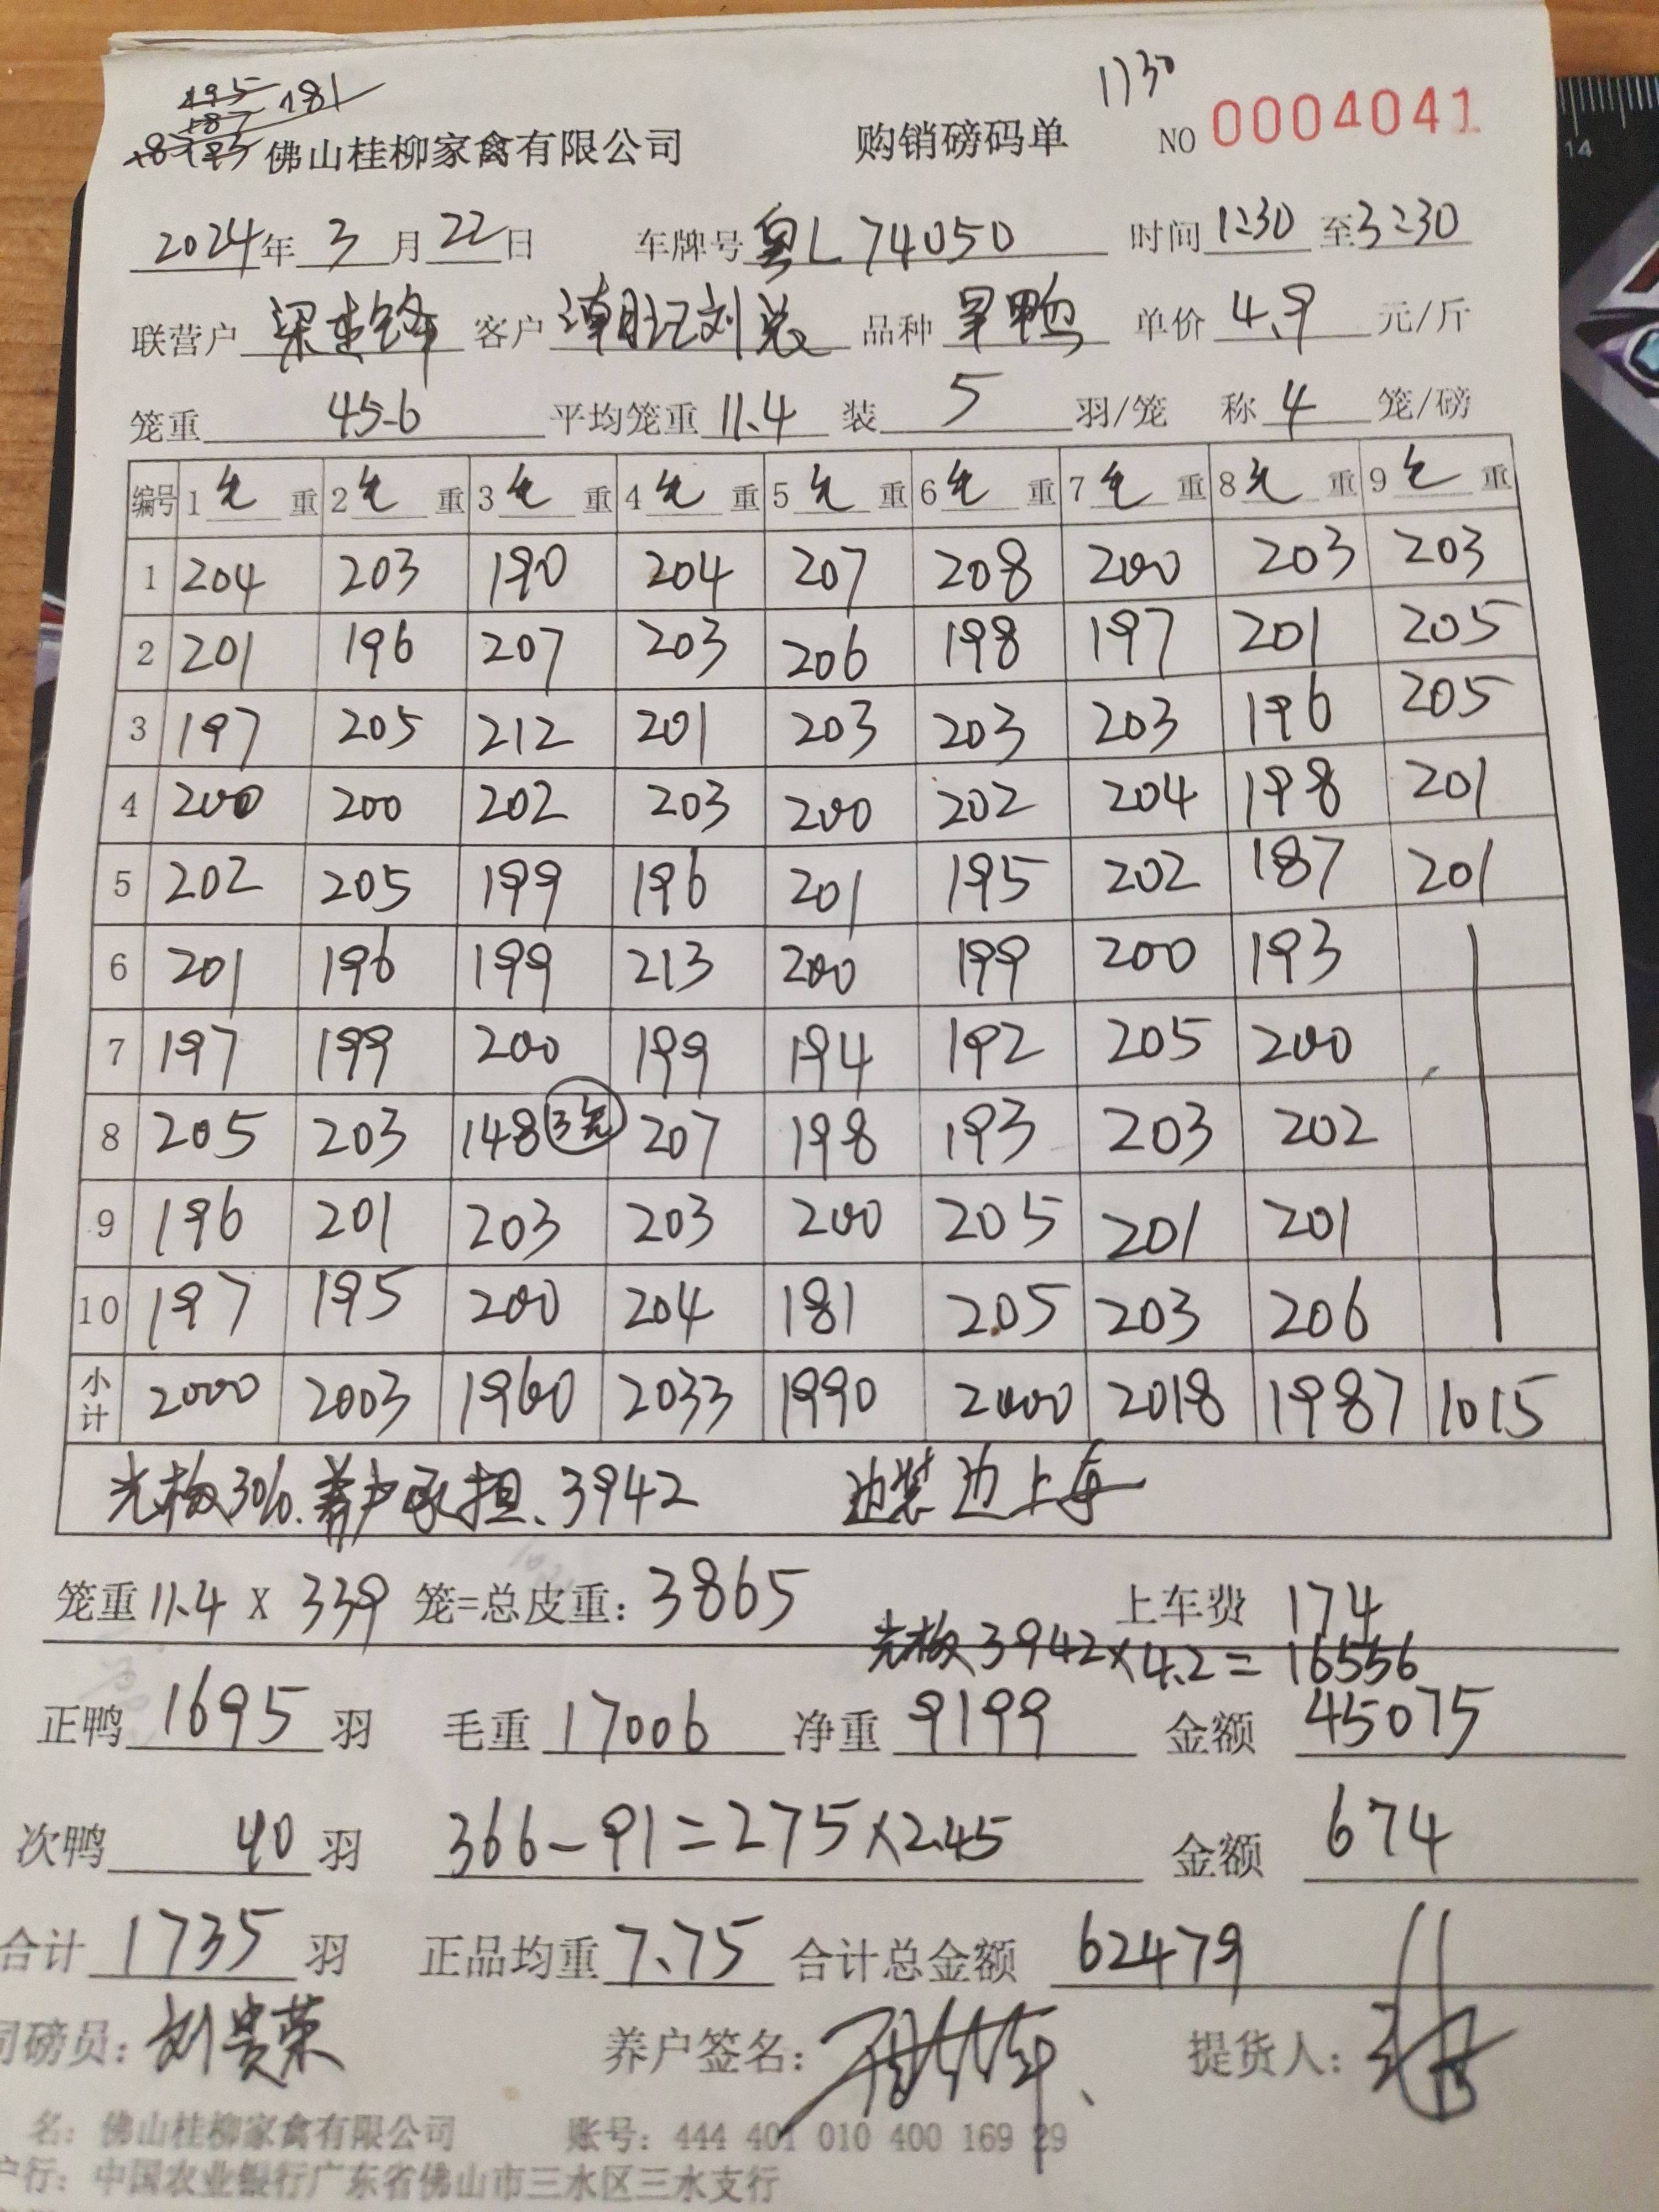 1730
195
187 181
佛山桂柳家禽有限公司 购销磅码单 NO 0004041
2024年 3 月 22 日 车牌号 粤L 74050 时间 1:30 至 3:30
联营户 客户 刘总 品种 单价 4.9 元/斤
笼重 45.6 平均笼重 11.4 装 5 羽/笼 称 4 笼/磅
编号 1 毛 重 2 毛 重 3 毛 重 4 毛 重 5 毛 重 6 毛 重 7 毛 重 8 毛 重 9 毛 重
1 204 203 190 204 207 208 200 203 203
2 201 196 207 203 206 198 197 201 205
3 197 205 212 201 203 203 203 196 205
4 200 200 202 203 200 202 204 198 201
5 202 205 199 196 201 195 202 187 201
6 201 196 199 213 200 199 200 193
7 197 199 200 199 194 192 205 200
8 205 203 148 3笼 207 198 193 203 202
9 196 201 203 203 200 205 201 201
10 197 195 200 204 181 205 203 206
小计 2000 2003 1960 2033 1990 2000 2018 1987 1015
光板30%.养户承担、3942 边装边上车
笼重 11.4 X 339 笼=总皮重: 3865 上车费 174
光板3942×4.2=16556
正鸭 1695 羽 毛重 17006 净重 9199 金额 45075
次鸭 40 羽 366-91=275×2.45 金额 674
合计 1735 羽 正品均重 7.75 合计总金额 62479
司磅员: 刘贵荣 养户签名: 提货人:
名: 佛山桂柳家禽有限公司 账号: 444 401 010 400 169 29
户行: 中国农业银行广东省佛山市三水区三水支行